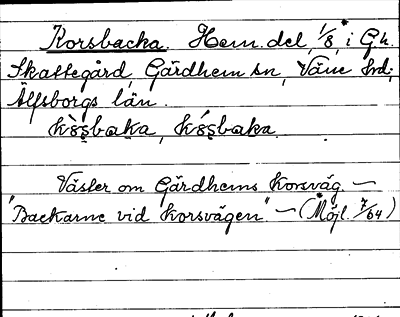 Korsbacka. Hem. del, 1/8, i Gh.
Skattegård, Gärdhem sn, Väne hrd;
Älfsborgs län.
Väster om Gärdhems Korsväg. —
"Backarne vid Korsvägen." — (Möjl. 7/64)